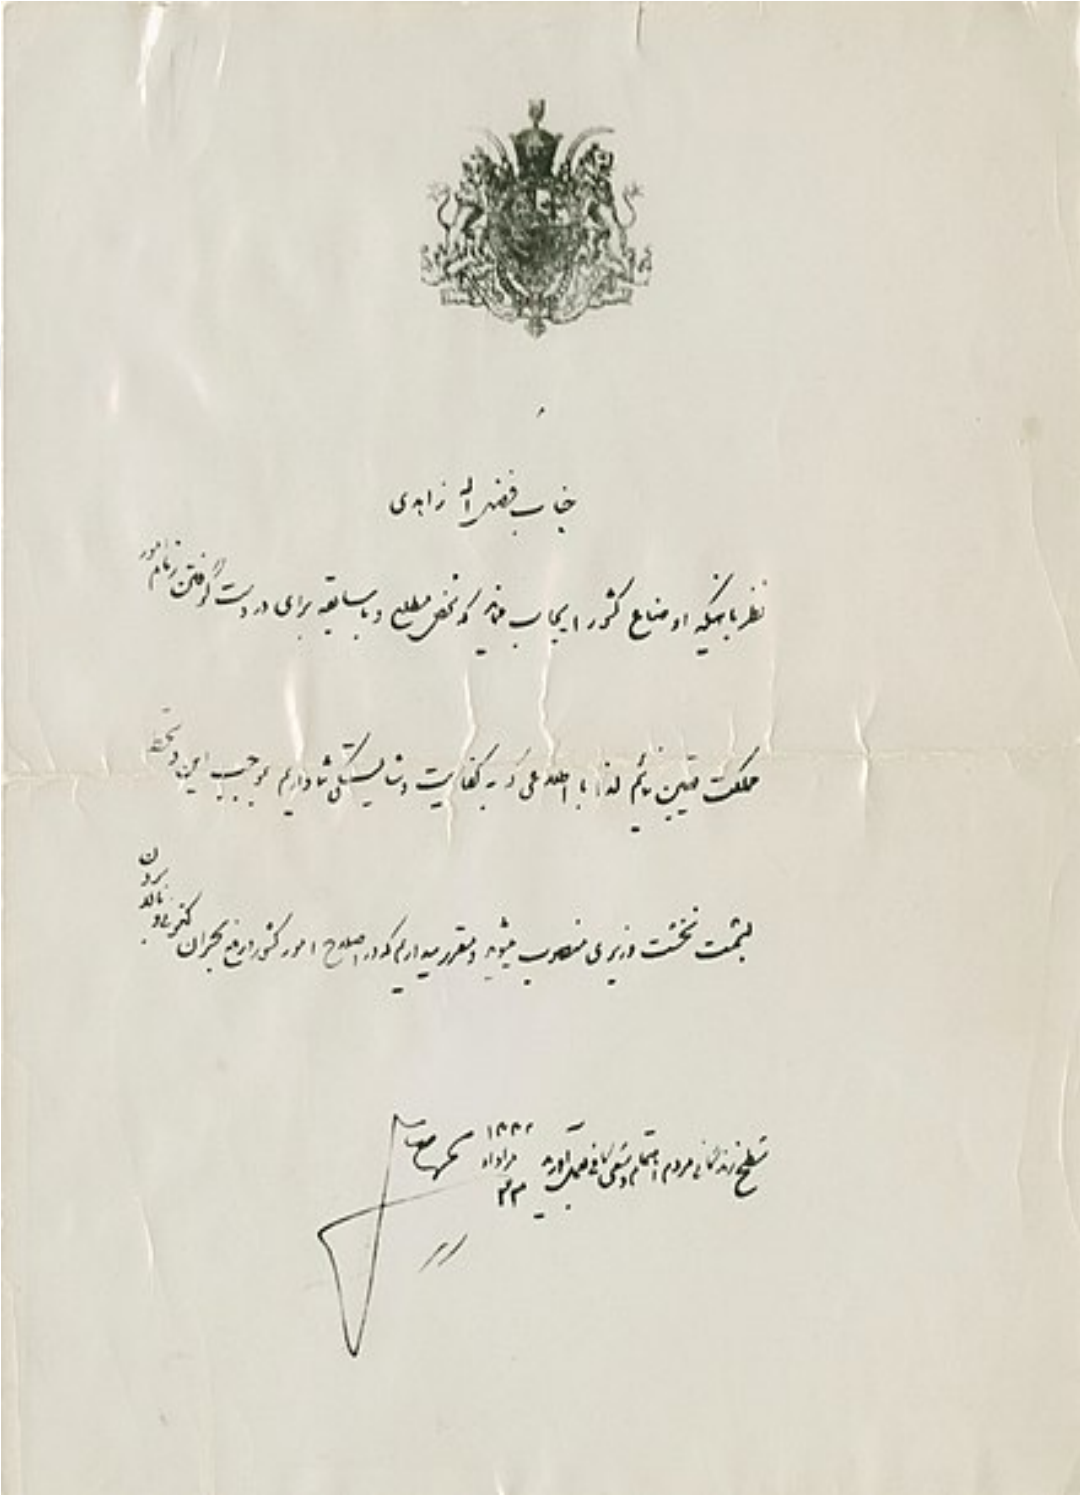 جناب فضل اله زاهدی
نظر باینکه اوضاع کشور ایجاب مینماید که شخص مطلع و باسابقه برای در دست گرفتن زمام امور
مملکت تعیین نمائیم لذا با اطلاعی که به کفایت و شایستگی شما داریم بموجب این دستخط
بسمت نخست وزیری منصوب میشوید و مقرر میداریم که در اصلاح امور کشور و رفع بحران کنونی و بالا بردن
سطح زندگانی مردم اهتمام و سعی کافی بعمل آورید
۲۲ مرداد ۱۳۳۲